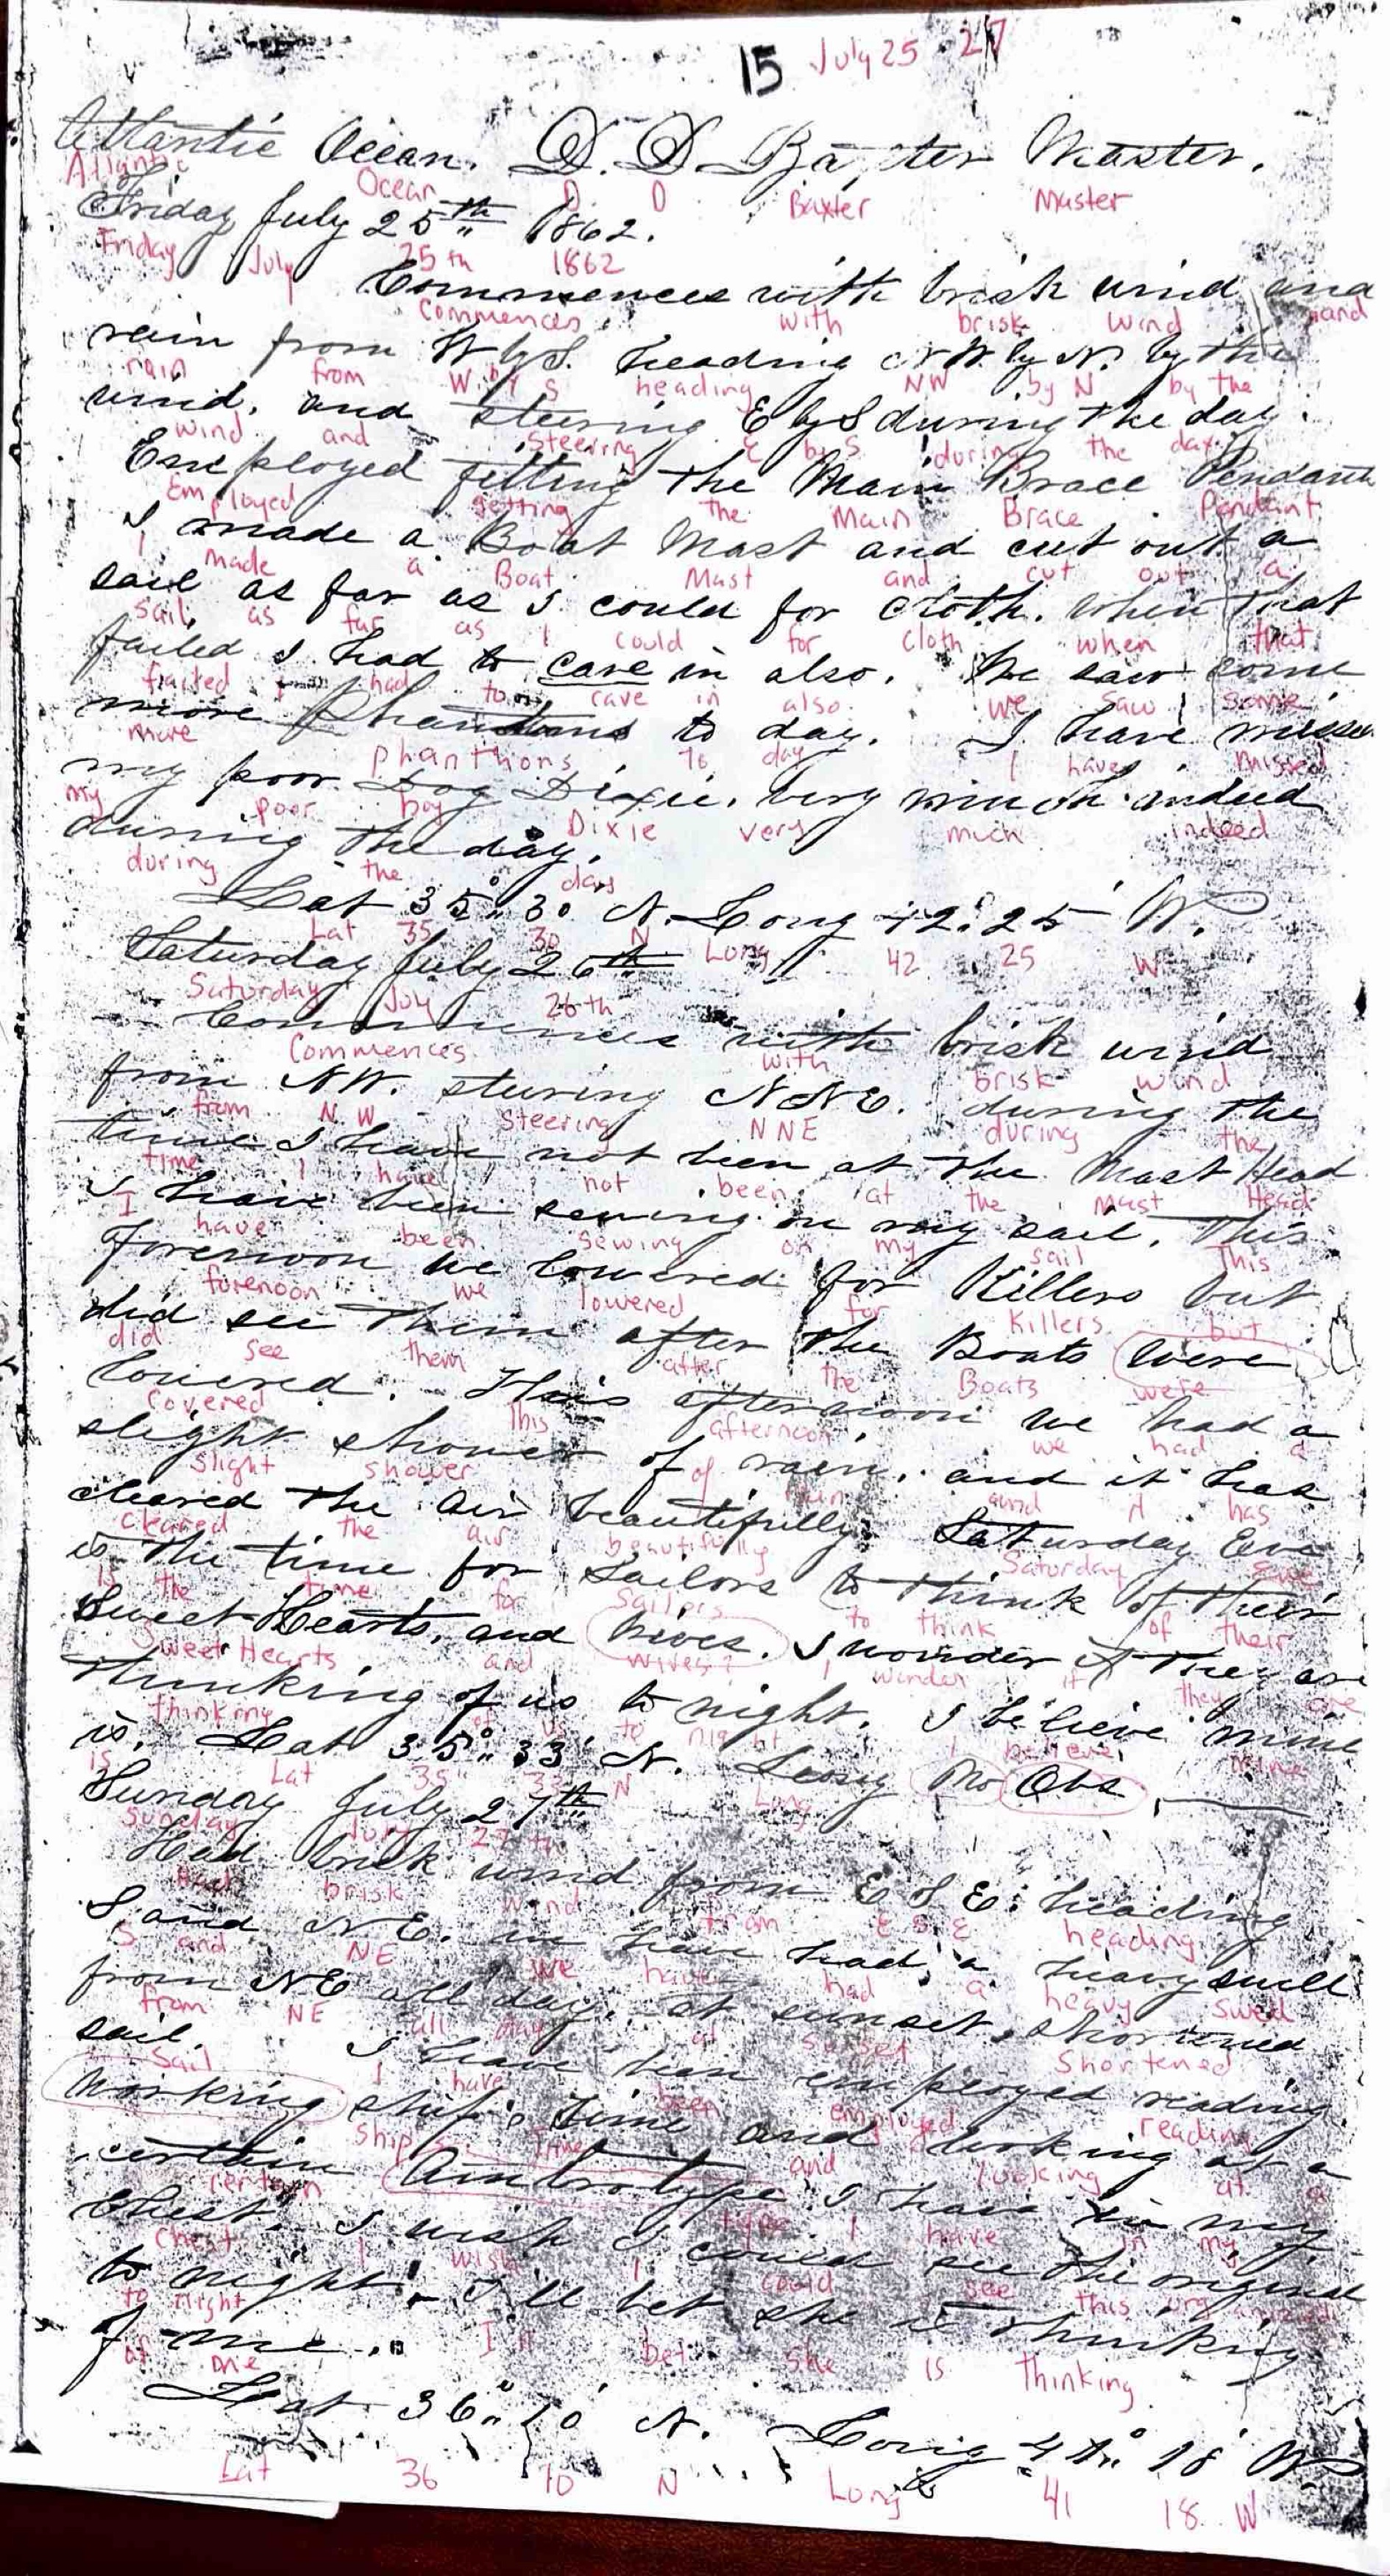 15 July 25 - 27
Atlantic Ocean. D. D Baxter Master.
Atlantic Ocean D. D. Baxter Master
Friday July 25th 1862.
Friday July 25th 1862
Commences with brisk wind and
Commences with brisk wind and
rain from W by S. heading NW. by N. by the
rain from W. by S heading NW by N by the
wind, and steering E by S during the day.
wind and steering E by S. during the day.
Employed fitting the Main Brace Pendant
Employed getting the Main Brace Pendant
I made a Boat Mast and cut out a
I made a Boat Mast and cut out a
sail as far as I could for cloth. When that
sail as far as I could for cloth when that
failed I had to cave in also. We saw some
failed I had to cave in also we saw some
more Phantoms to day. I have missed
more phanthons to day I have missed
my poor Dog Dixie, very much indeed
my poor boy Dixie very much indeed
during the day.
during the day
Lat 35° 30' N. Long 42° 25' W.
Lat 35 30 N Long 42 25 W
Saturday July 26th
Saturday July 26th
Commences with brisk wind
Commences with brisk wind
from NW. stering NNE. during the
from NW steering NNE during the
time I have not been at the Mast Head
time I have not been at the Mast Head
I have been sewing on my sail. This
I have been sewing on my sail This
forenoon we lowered for Killers but
forenoon we lowered for Killers but
did see them after the Boats were
did see them after the Boats were
lowered. This afternoon we had a
covered This afternoon we had a
slight shower of rain, and it has
slight shower of rain and it has
cleared the air beautifully. Saturday Eve
cleared the air beautifully Saturday Eve
is the time for Sailors to think of their
is the time for Sailors to think of their
Sweet Hearts, and Wives. I wonder if they are
Sweet Hearts and wives? I wonder if they are
thinking of us to night. I believe mine
thinking of us to night I believe mine
is. Lat 35° 33' N. Long No Obs.
is Lat 35 33 N Long
Sunday July 27th
Sunday July 27th
Had brisk wind from E S E. heading
Had brisk wind from E S E heading
S. and NE. we have had a heavy swell
S and NE we have had a heavy swell
from NE all day. at sunset shortened
from NE all day at sunset shortened
sail. I have been employed reading,
Sail I have been employed reading
working ship's time and looking at a
ship's time and looking at a
certain Ambrotype I have in my
certain type I have in my
Chest. I wish I could see the original
Chest I wish I could see this
to night. I'll bet she is thinking
to night I'll bet she is thinking
of me.
of me
Lat 36° 10' N. Long 41° 18' W.
Lat 36 10 N Long 41 18 W